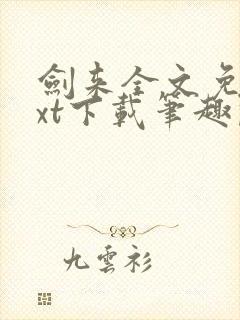 劍来全文免
xt下載筆趣
九雲衫